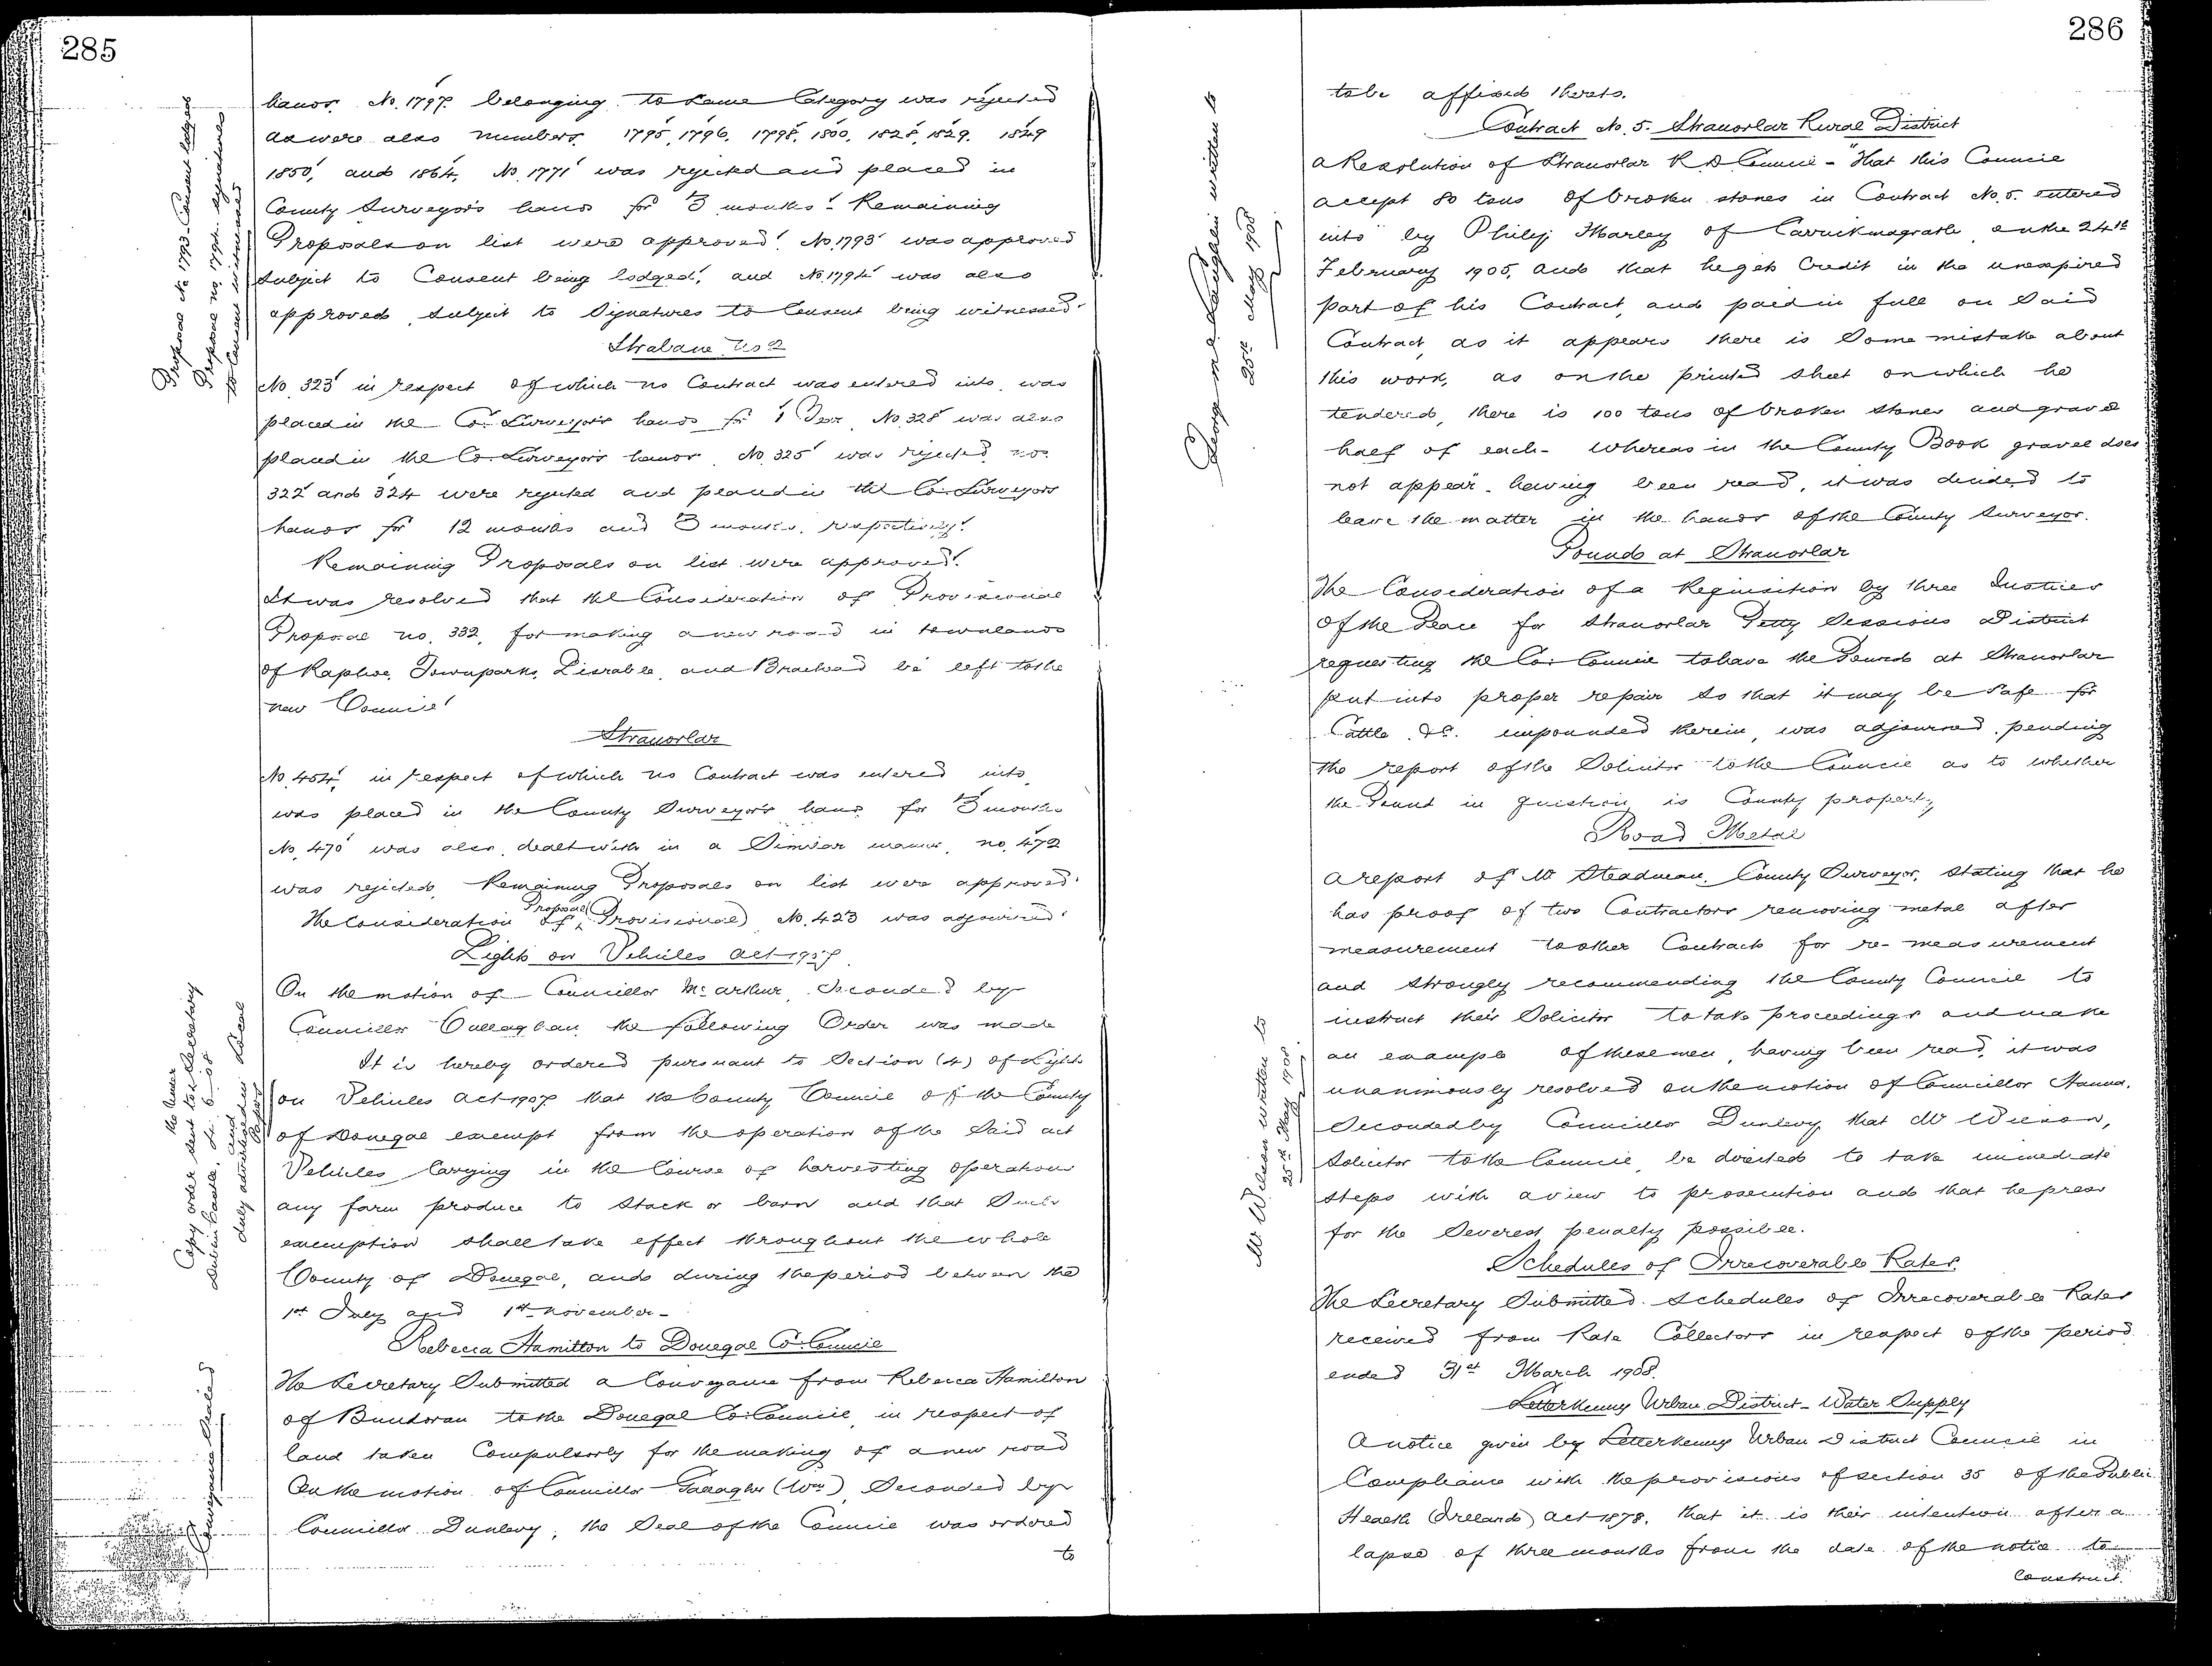 285
hands. No. 1797. belonging to same Category was rejected
as were also numbers 1795, 1796. 1798. 1800. 1828, 1829. 1849
1850, and 1864. No. 1771 was rejected and placed in
County Surveyor's hands for 3 months. Remaining
Proposals on list were approved. No. 1793 was approved
subject to Consent being lodged, and No. 1794 was also
approved subject to Signatures to Consent being witnessed.
Proposal No 1793. Consent lodged
Proposal no. 1794. signatures
to Consent witnessed
Strabane No 2
No. 323 in respect of which no Contract was entered into was
placed in the Co. Surveyor's hands for 1 Year. No. 328 was also
placed in the Co. Surveyor's hands. No. 325 was rejected. nos
322 and 324 were rejected and placed in the Co. Surveyors
hands for 12 months and 3 months. respectively.
Remaining Proposals on list were approved.
It was resolved that the Consideration of Provisional
Proposal no. 332, for making a new road in townlands
of Raphoe Townparks, Lisnable, and Braehead be left to the
new Council
Stranorlar
No. 454, in respect of which no Contract was entered into,
was placed in the County Surveyor's hands for 3 months
No. 470 was also dealt with in a Similar manner, no. 472
was rejected. Remaining Proposals on list were approved.
The consideration of Proposal (Provisional) No. 423 was adjourned.
Lights on Vehicles Act 1907
On the motion of Councillor McArthur, Seconded by
Councillor Callaghan the following Order was made
It is hereby ordered pursuant to Section (4) of Lights
on Vehicles Act 1907 that the County Council of the County
of Donegal exempt from the operation of the Said act
Vehicles Carrying in the Course of harvesting operations
any farm produce to Stack or barn and that Such
exemption shall take effect throughout the whole
County of Donegal, and during the period between the
1st July and 1st November.
Copy order sent to the Under Secretary
Dublin Castle,
and
duly advertised in Local
Papers
Rebecca Hamilton to Donegal Co. Council
The Secretary Submitted a Conveyance from Rebecca Hamilton
of Bundoran to the Donegal Co. Council, in respect of
land taken Compulsorly for the making of a new road
On the motion of Councillor Gallagher (Wm) Seconded by
Councillor Dunlevy, the Seal of the Council was ordered
to
Conveyance Sealed
286
to be affixed thereto.
Contract No. 5. Stranorlar Rural District
A Resolution of Stranorlar R. D. Council - "That this Council
accept 80 tons of broken stones in Contract No. 5. entered
into by Philip Marley of Carrickmagrath on the 24th
February 1905, and that he gets Credit in the unexpired
part of his Contract, and paid in full on Said
Contract, as it appears there is Some mistake about
this work, as on the printed sheet on which he
tendered, there is 100 tons of broken stones and gravel
half of each - Whereas in the County Book gravel does
not appear". having been read, it was decided to
leave the matter in the hands of the County Surveyor.
George McLaughlin written to
25th May 1908
Pound at Stranorlar
The Consideration of a Requisition by three Justices
of the Peace for Stranorlar Petty Sessions District
requesting the Co. Council to have the Pound at Stranorlar
put into proper repair so that it may be Safe for
Cattle &c. impounded therein, was adjourned pending
the report of the Solicitor to the Council as to whether
the Pound in question is County property,
Road Metal
A report of Mr Steadman. County Surveyor, stating that he
has proof of two Contractors removing metal after
measurement to other Contracts for re-measurement
and strongly recommending the County Council to
instruct their Solicitor to take proceedings and make
an example of these men, having been read, it was
unanimously resolved on the motion of Councillor Hanna.
Seconded by Councillor Dunlevy that Mr Wilson,
Solicitor to the Council, be directed to take immediate
steps with a view to prosecution and that he press
for the Severest penalty possible.
Mr Wilson written to
25th May 1908.
Schedules of Irrecoverable Rates.
The Secretary Submitted Schedules of Irrecoverable Rates
received from Rate Collectors in respect of the period
ended 31st March 1908.
Letterkenny Urban District - Water Supply
A notice given by Letterkenny Urban District Council in
Compliance with the provisions of section 35 of the Public
Health (Ireland) Act 1878, that it is their intention after a
lapse of three months from the date of the notice to
Construct.